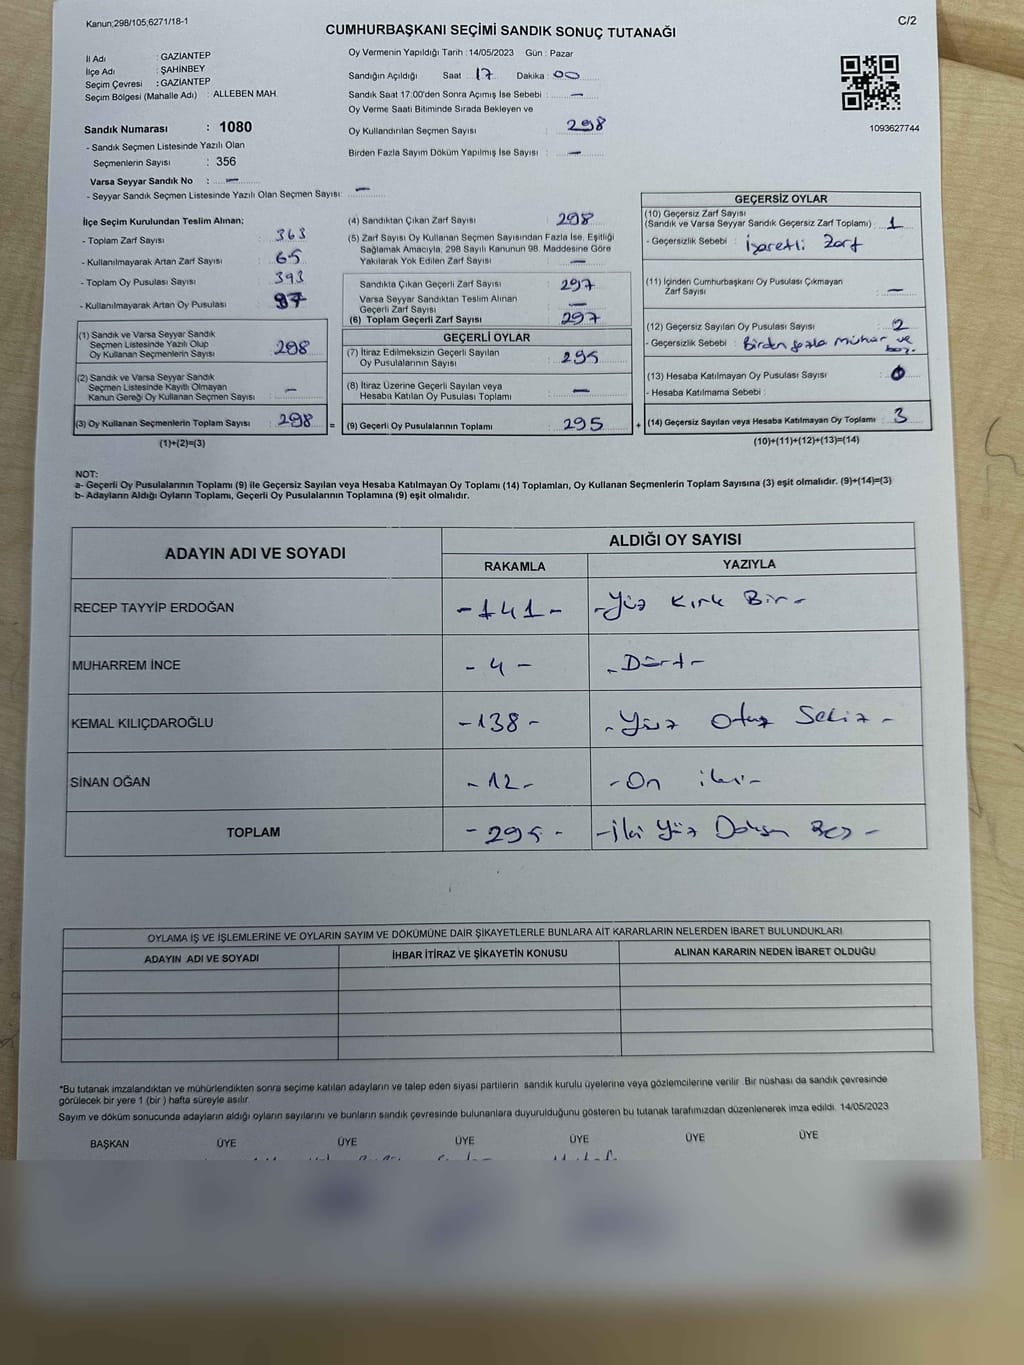 Kanun;298/105,6271/18-1
C/2
CUMHURBAŞKANI SEÇİMİ SANDIK SONUÇ TUTANAĞI
İl Adı : GAZİANTEP
İlçe Adı : ŞAHİNBEY
Seçim Çevresi : GAZİANTEP
Seçim Bölgesi (Mahalle Adı) : ALLEBEN MAH.
Sandık Numarası : 1080
- Sandık Seçmen Listesinde Yazılı Olan
Seçmenlerin Sayısı : 356
Varsa Seyyar Sandık No : —
- Seyyar Sandık Seçmen Listesinde Yazılı Olan Seçmen Sayısı: —
Oy Vermenin Yapıldığı Tarih : 14/05/2023 Gün : Pazar
Sandığın Açıldığı Saat 17 Dakika : 00
Sandık Saat 17:00'den Sonra Açımış İse Sebebi : —
Oy Verme Saati Bitiminde Sırada Bekleyen ve
Oy Kullandırılan Seçmen Sayısı : 298
Birden Fazla Sayım Döküm Yapılmış İse Sayısı : —
1093627744
İlçe Seçim Kurulundan Teslim Alınan;
- Toplam Zarf Sayısı : 363
- Kullanılmayarak Artan Zarf Sayısı : 65
- Toplam Oy Pusulası Sayısı : 393
- Kullanılmayarak Artan Oy Pusulası :
(1) Sandık ve Varsa Seyyar Sandık
Seçmen Listesinde Yazılı Olup
Oy Kullanan Seçmenlerin Sayısı : 298
(2) Sandık ve Varsa Seyyar Sandık
Seçmen Listesinde Kayıtlı Olmayan
Kanun Gereği Oy Kullanan Seçmen Sayısı : —
(3) Oy Kullanan Seçmenlerin Toplam Sayısı : 298
(1)+(2)=(3)
(4) Sandıktan Çıkan Zarf Sayısı : 298
(5) Zarf Sayısı Oy Kullanan Seçmen Sayısından Fazla İse, Eşitliği
Sağlamak Amacıyla, 298 Sayılı Kanunun 98. Maddesine Göre
Yakılarak Yok Edilen Zarf Sayısı : —
Sandıkta Çıkan Geçerli Zarf Sayısı : 297
Varsa Seyyar Sandıktan Teslim Alınan
Geçerli Zarf Sayısı : —
(6) Toplam Geçerli Zarf Sayısı : 297
GEÇERLİ OYLAR
(7) İtiraz Edilmeksizin Geçerli Sayılan
Oy Pusulalarının Sayısı : 295
(8) İtiraz Üzerine Geçerli Sayılan veya
Hesaba Katılan Oy Pusulası Toplamı : —
= (9) Geçerli Oy Pusulalarının Toplamı : 295
GEÇERSİZ OYLAR
(10) Geçersiz Zarf Sayısı
(Sandık ve Varsa Seyyar Sandık Geçersiz Zarf Toplamı) : 1
- Geçersizlik Sebebi : İşaretli Zarf
(11) İçinden Cumhurbaşkanı Oy Pusulası Çıkmayan
Zarf Sayısı : —
(12) Geçersiz Sayılan Oy Pusulası Sayısı : 2
- Geçersizlik Sebebi : Birden fazla mühür ve
boş.
(13) Hesaba Katılmayan Oy Pusulası Sayısı : 0
- Hesaba Katılmama Sebebi :
+ (14) Geçersiz Sayılan veya Hesaba Katılmayan Oy Toplamı : 3
(10)+(11)+(12)+(13)=(14)
NOT:
a- Geçerli Oy Pusulalarının Toplamı (9) ile Geçersiz Sayılan veya Hesaba Katılmayan Oy Toplamı (14) Toplamları, Oy Kullanan Seçmenlerin Toplam Sayısına (3) eşit olmalıdır. (9)+(14)=(3)
b- Adayların Aldığı Oyların Toplamı, Geçerli Oy Pusulalarının Toplamına (9) eşit olmalıdır.
ADAYIN ADI VE SOYADI ALDIĞI OY SAYISI
RAKAMLA YAZIYLA
RECEP TAYYİP ERDOĞAN -141- -Yüz Kırk Bir-
MUHARREM İNCE -4- -Dört-
KEMAL KILIÇDAROĞLU -138- -Yüz Otuz Sekiz-
SİNAN OĞAN -12- -On iki-
TOPLAM -295- -İki Yüz Doksan Beş-
OYLAMA İŞ VE İŞLEMLERİNE VE OYLARIN SAYIM VE DÖKÜMÜNE DAİR ŞİKAYETLERLE BUNLARA AİT KARARLARIN NELERDEN İBARET BULUNDUKLARI
ADAYIN ADI VE SOYADI İHBAR İTİRAZ VE ŞİKAYETİN KONUSU ALINAN KARARIN NEDEN İBARET OLDUĞU
*Bu tutanak imzalandıktan ve mühürlendikten sonra seçime katılan adayların ve talep eden siyasi partilerin sandık kurulu üyelerine veya gözlemcilerine verilir. Bir nüshası da sandık çevresinde
görülecek bir yere 1 (bir) hafta süreyle asılır.
Sayım ve döküm sonucunda adayların aldığı oyların sayılarını ve bunların sandık çevresinde bulunanlara duyurulduğunu gösteren bu tutanak tarafımızdan düzenlenerek imza edildi. 14/05/2023
BAŞKAN ÜYE ÜYE ÜYE ÜYE ÜYE ÜYE